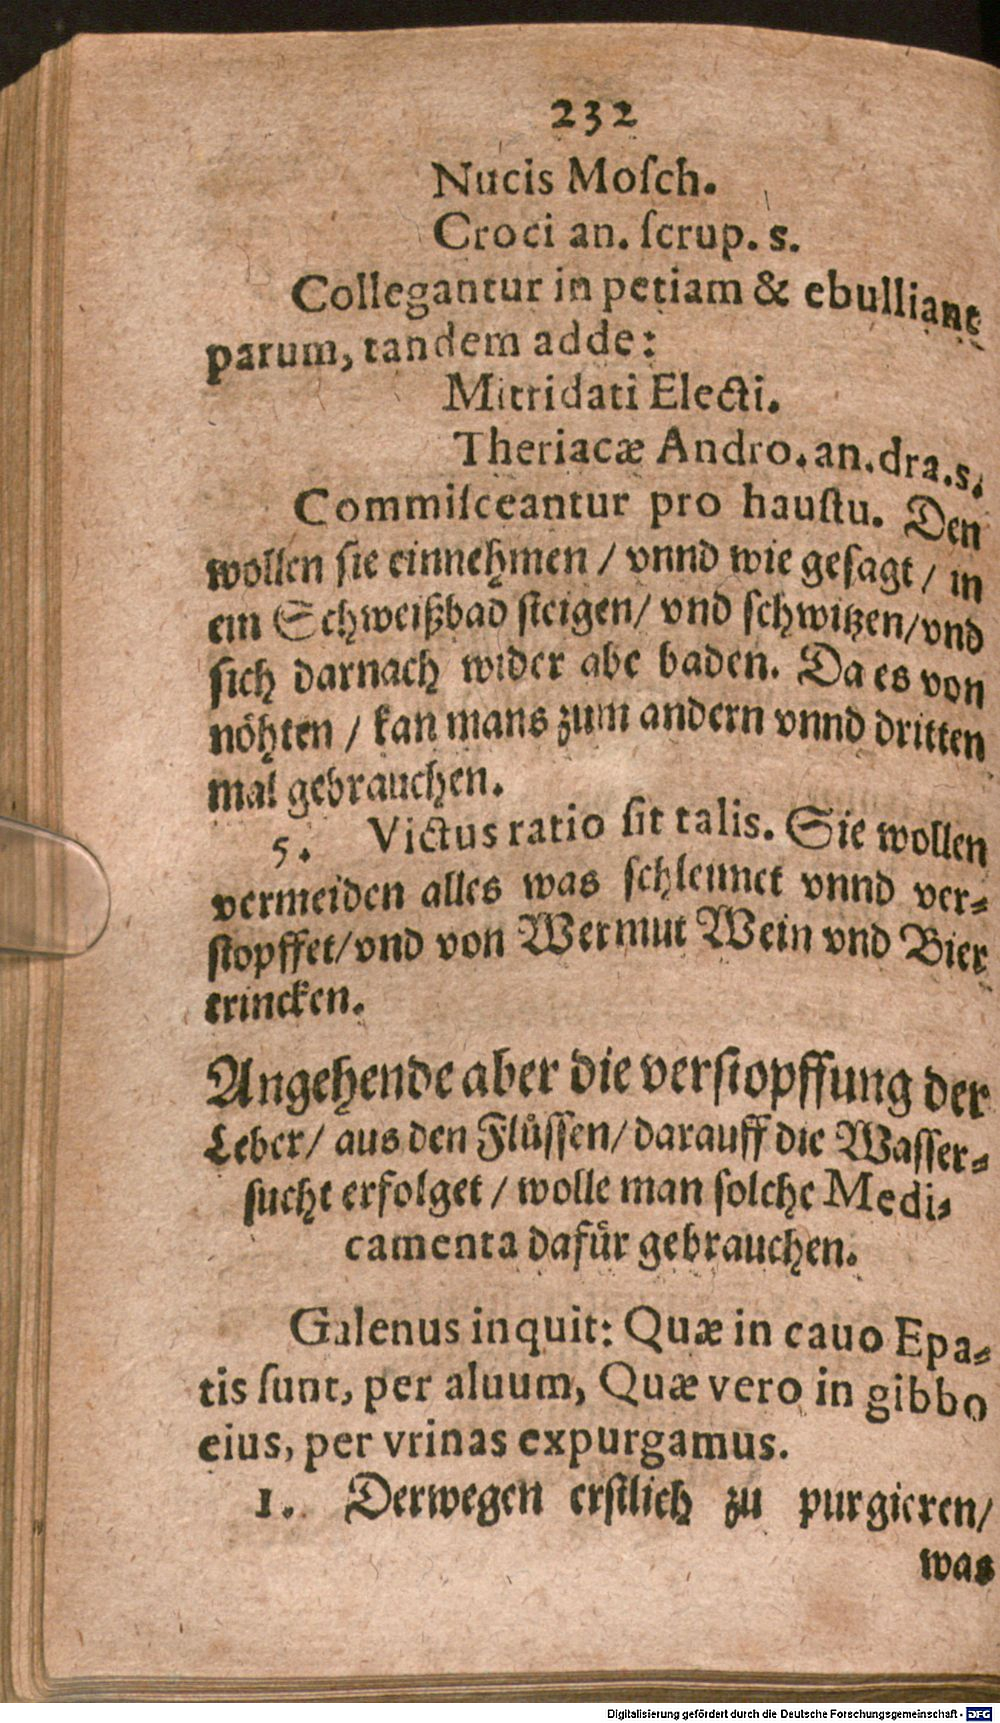 232
Nucis Moſch.
Croci an. ſcrup. s.
Collegantur in petiam & ebulliant
parum, tandem adde:
Mitridati Electi.
Theriacæ Andro. an. dra. s.
Commiſceantur pro hauſtu. Den
wollen ſie einnehmen / vnnd wie geſagt / in
ein Schweißbad ſteigen/ vnd ſchwitzen/vnd
ſich darnach wider abe baden. Da es von
nöhten / kan mans zum andern vnnd dritten
mal gebrauchen.
5. Victus ratio ſit talis. Sie wollen
vermeiden alles was ſchleunet vnnd ver⸗
ſtopffet/vnd von Wermut Wein vnd Bier
trincken.
Angehende aber die verſtopffung der
Leber/ aus den Flüſſen/ darauff die Waſſer⸗
ſucht erfolget / wolle man ſolche Medi⸗
camenta dafür gebrauchen.
Galenus inquit: Quæ in cauo Epa⸗
tis ſunt, per aluum, Quæ vero in gibbo
eius, per vrinas expurgamus.
1. Derwegen erſtlich zu purgieren/
was
Digitalisierung gefördert durch die Deutsche Forschungsgemeinschaft - DFG